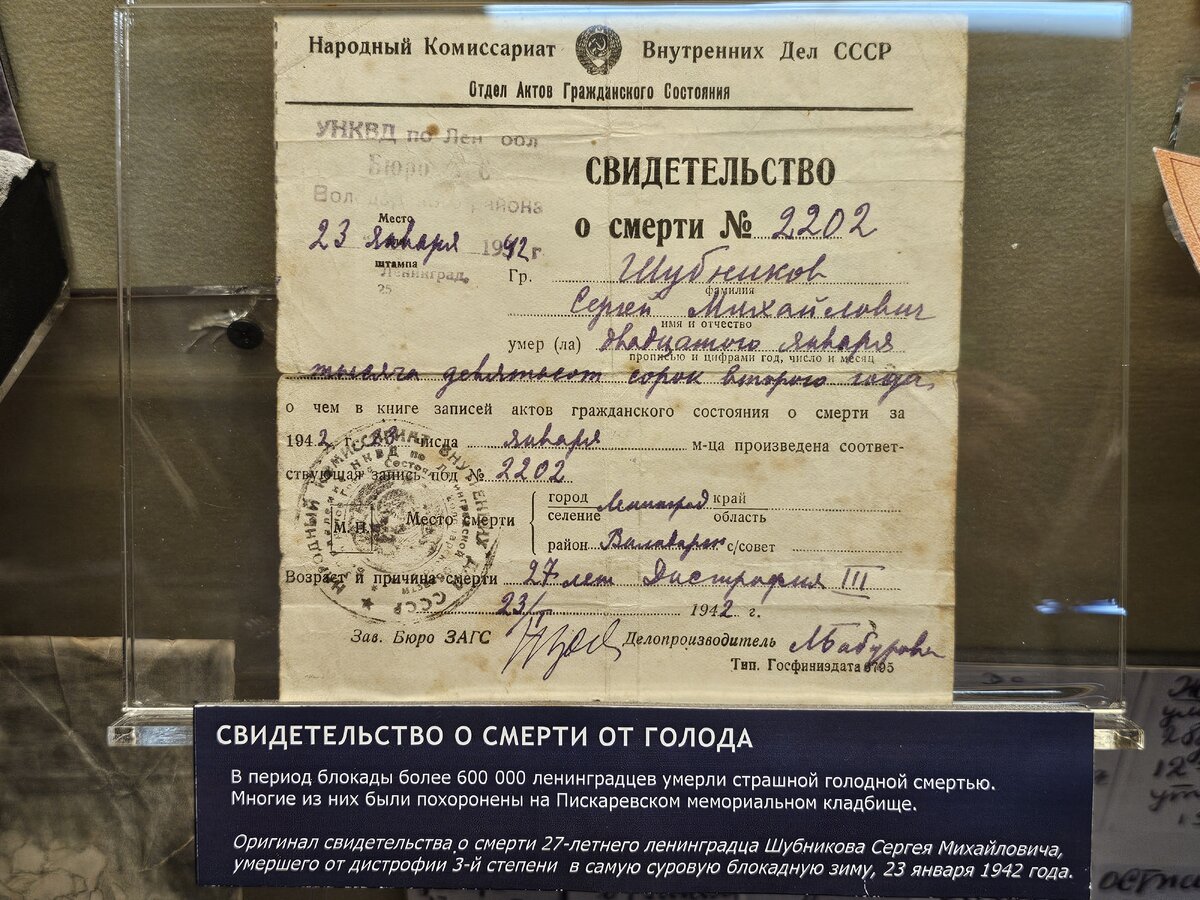 Народный Комиссариат Внутренних Дел СССР
Отдел Актов Гражданского Состояния
УНКВД по Лен обл
Бюро
района
СВИДЕТЕЛЬСТВО
о смерти № 2202
Место
штампа
23 января 1942 г
Ленинград,
25
Гр. Шубников
фамилия
Сергей Михайлович
имя и отчество
умер (ла) двадцатого января
прописью и цифрами год, число и месяц
тысяча девятьсот сорок второго года,
о чем в книге записей актов гражданского состояния о смерти за
1942 г. 23 числа января м-ца произведена соответ-
ствующая запись под № 2202
город Ленинград край
селение область
М. П. Место смерти
район с/совет
Возраст и причина смерти 27 лет Дистрофия III
23/I 1942 г.
Зав. Бюро ЗАГС Делопроизводитель МБабурова
Тип. Госфиниздата 6795
НАРОДНЫЙ КОМИССАРИАТ ВНУТРЕННИХ ДЕЛ СССР
СВИДЕТЕЛЬСТВО О СМЕРТИ ОТ ГОЛОДА
В период блокады более 600 000 ленинградцев умерли страшной голодной смертью.
Многие из них были похоронены на Пискаревском мемориальном кладбище.
Оригинал свидетельства о смерти 27-летнего ленинградца Шубникова Сергея Михайловича,
умершего от дистрофии 3-й степени в самую суровую блокадную зиму, 23 января 1942 года.